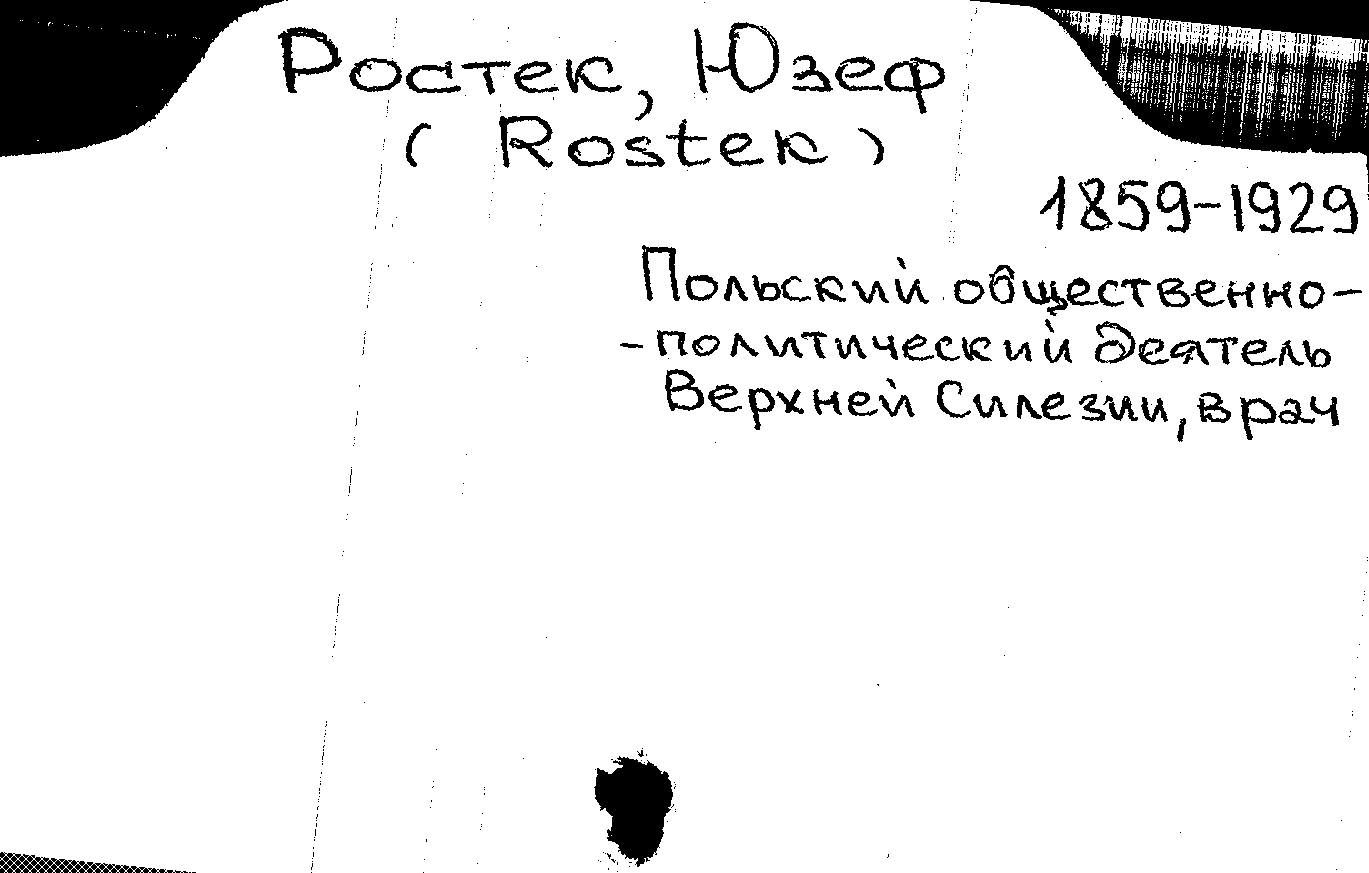 Ростек, Юзеф
( Rostek )
1859-1929
Польский общественно-
-политический деятель
Верхней Силезии, врач